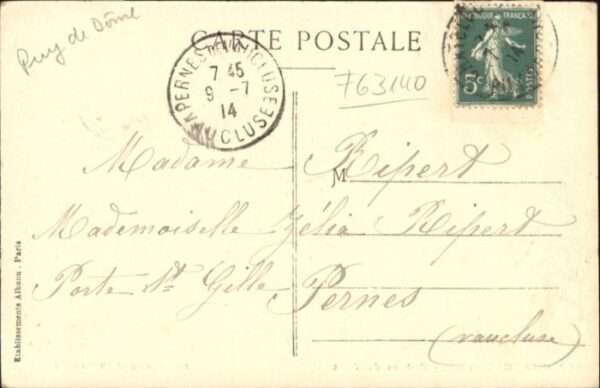 Puy de Dôme
CARTE POSTALE
PERNES
VAUCLUSE
7 45
9 -7
14
763140
REPUBLIQUE FRANÇAISE
5c
POSTES
Madame Ripert
M
Mademoiselle Zélia Ripert
Porte St Gille Pernes
(vaucluse)
Etablissements Albanu . Paris